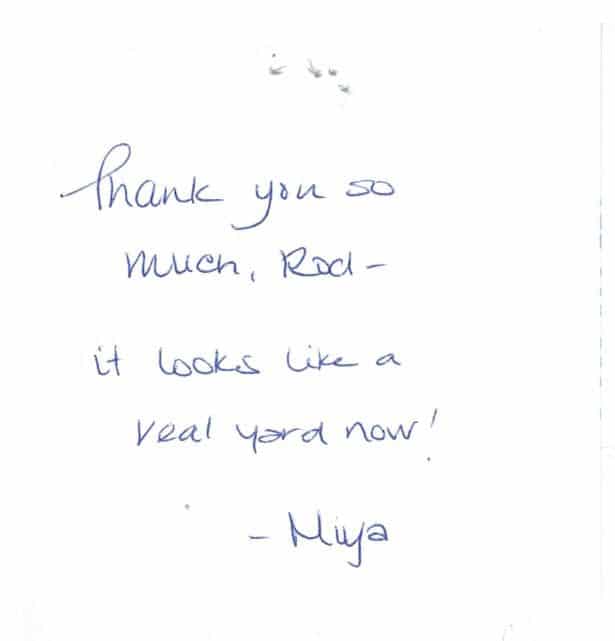 Thank you so
much, Rod-
it looks like a
real yard now!
- Miya